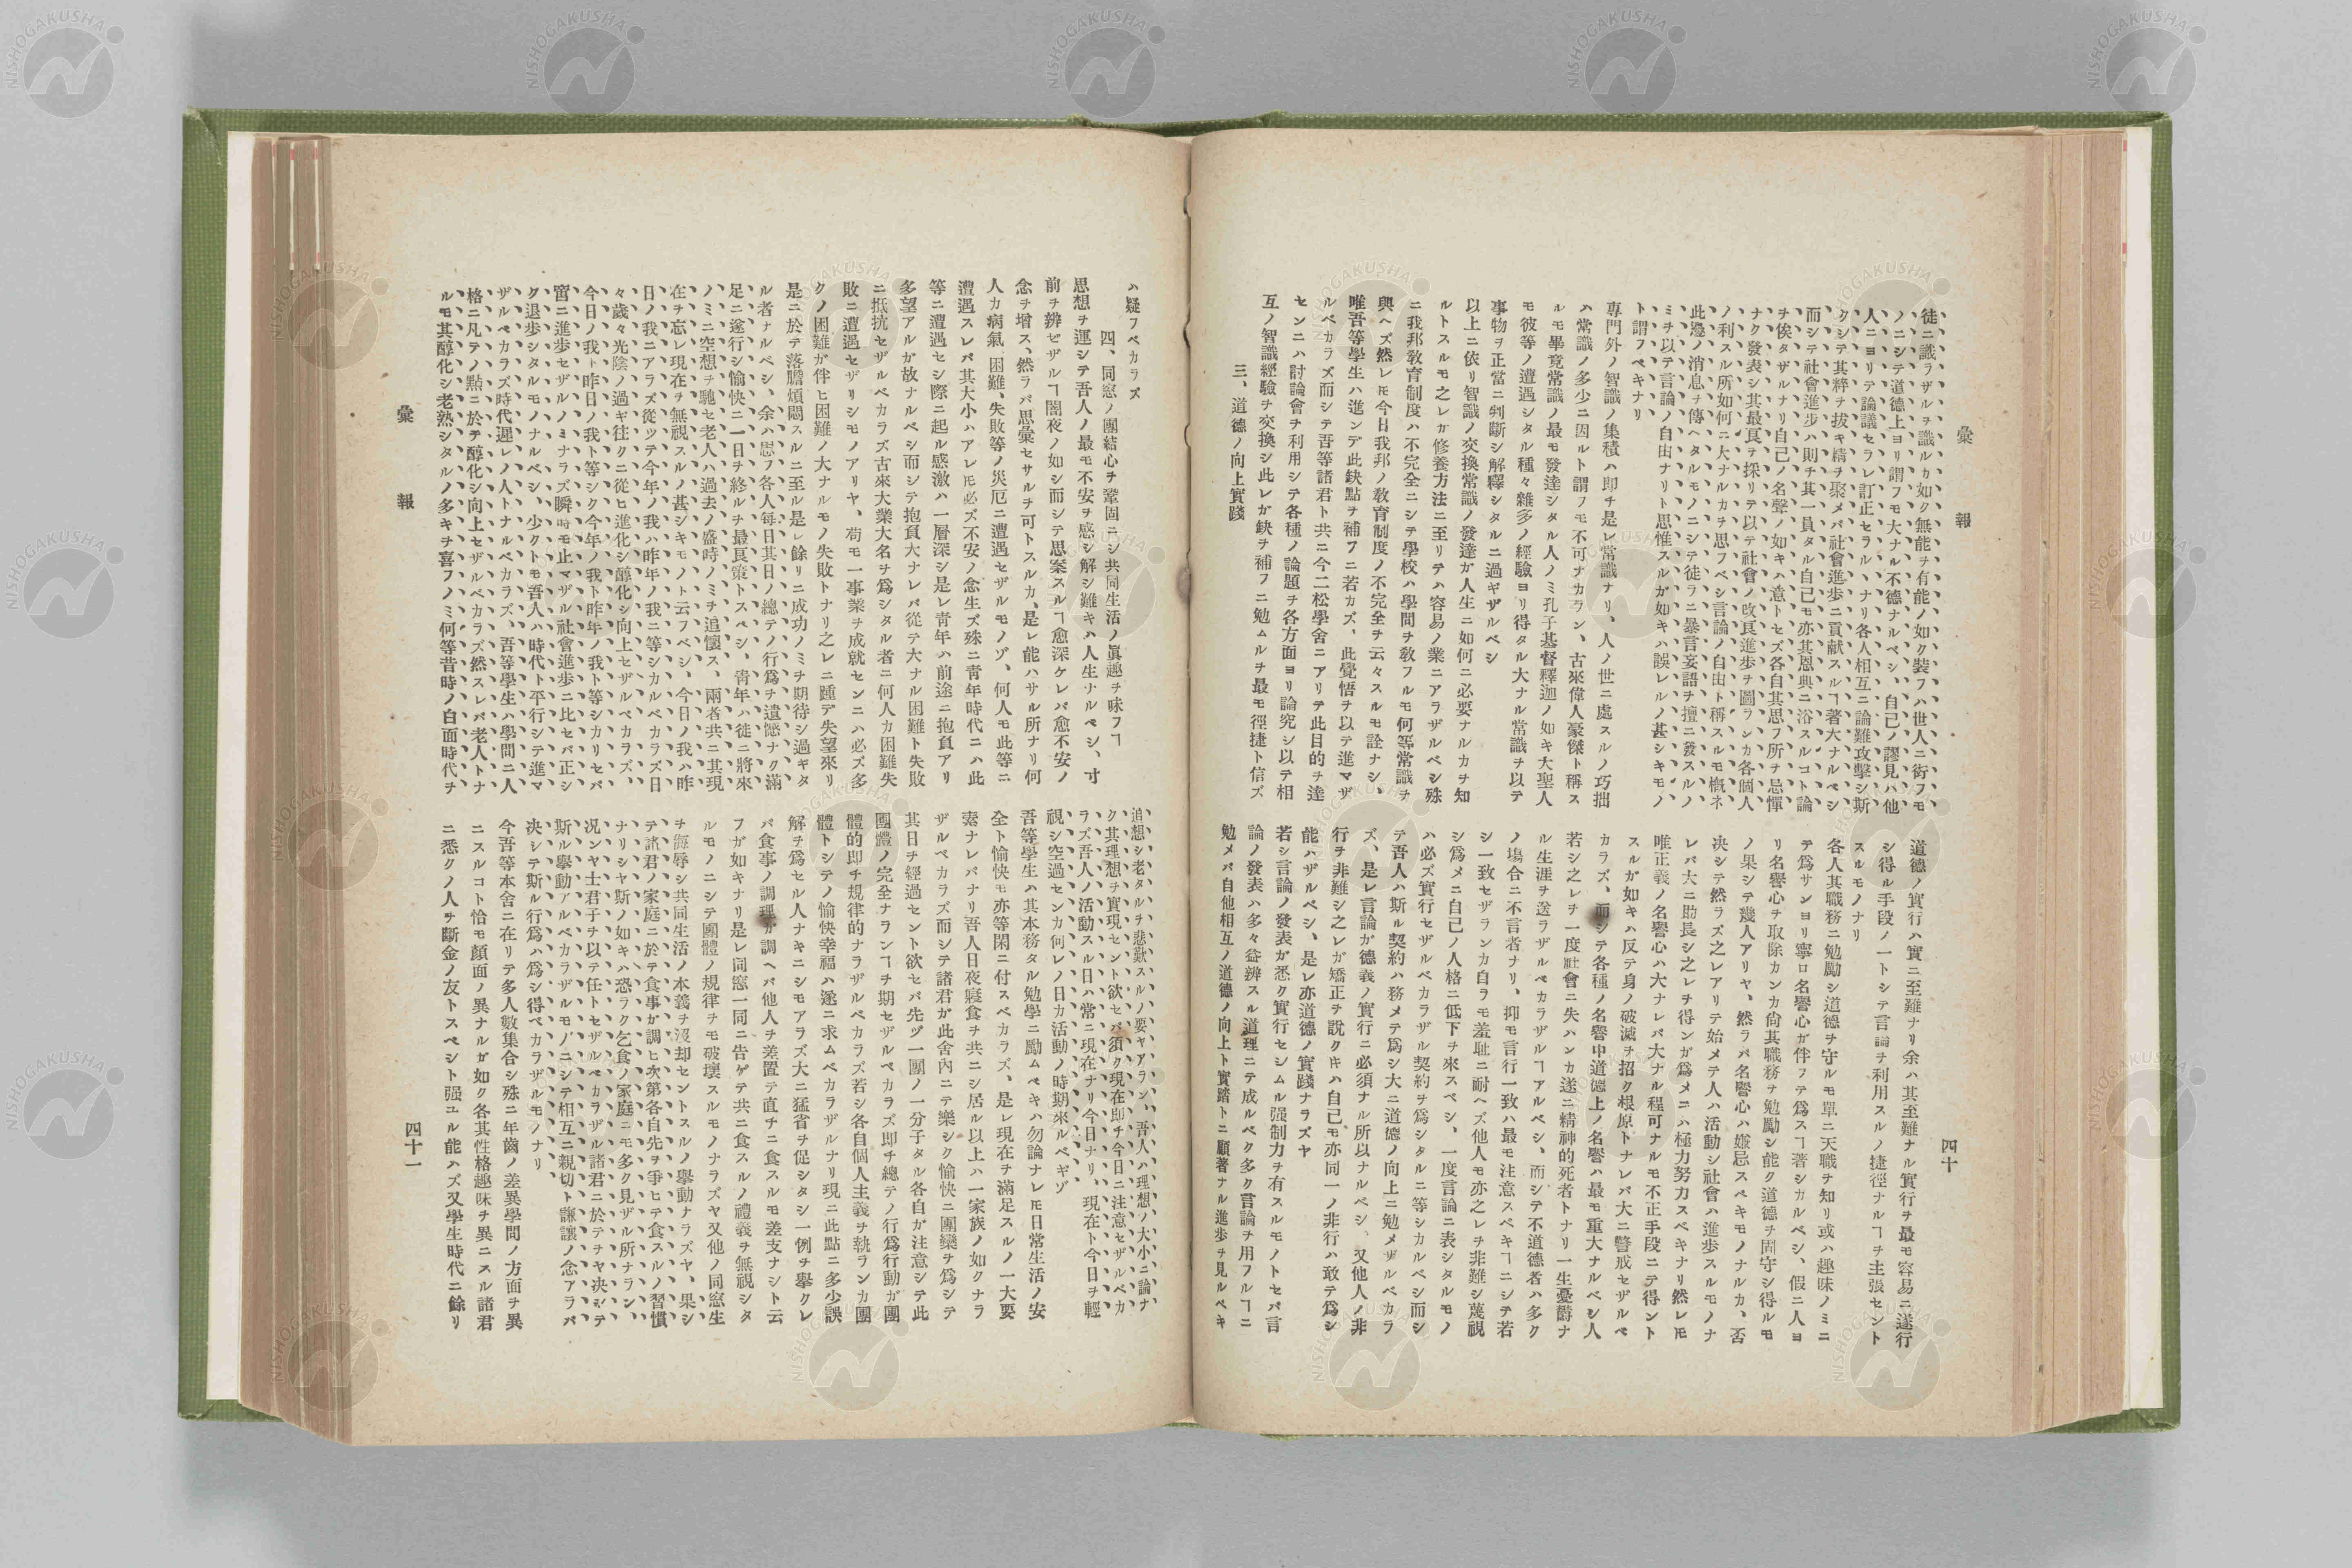 彙報
四十
徒ニ識ラザルヲ識ルカ如ク無能ヲ有能ノ如ク裝フハ世人ニ衒フモ
ノニシテ道德上ヨリ謂フモ大ナル不德ナルベシ、自己ノ謬見ハ他
人ニヨリテ論議セラレ訂正セラルヽナリ各人相互ニ論難攻擊シ斯
クシテ其粹ヲ拔キ精ヲ聚メバ社會進歩ニ貢献スルヿ著大ナルベシ
而シテ社會進步ハ則チ其一員タル自己モ亦其恩典ニ浴スルコト論
ヲ俟タザルナリ自己ノ名聲ノ如キハ意トセズ各自其思フ所ヲ忌憚
ナク發表シ其最良ヲ採リテ以テ社會ノ改良進歩ヲ圖ランカ各個人
ノ利スル所如何ニ大ナルカヲ思フベシ言論ノ自由ト稱スルモ槪ネ
此邊ノ消息ヲ傳ヘタルモノニシテ徒ラニ暴言妄語ヲ擅ニ發スルノ
ミヲ以テ言論ノ自由ナリト思惟スルガ如キハ誤レルノ甚シキモノ
ト謂フベキナリ
專門外ノ智識ノ集積ハ即チ是レ常識ナリ、人ノ世ニ處スルノ巧拙
ハ常識ノ多少ニ因ルト謂フモ不可ナカラン、古來偉人豪傑ト稱ス
ルモ畢竟常識ノ最モ發達シタル人ノミ孔子基督釋迦ノ如キ大聖人
モ彼等ノ遭遇シタル種々雜多ノ經驗ヨリ得タル大ナル常識ヲ以テ
事物ヲ正當ニ判斷シ解釋シタルニ過ギザルベシ
以上ニ依リ智識ノ交換常識ノ發達ガ人生ニ如何ニ必要ナルカヲ知
ルトスルモ之レガ修養方法ニ至リテハ容易ノ業ニアラザルベシ殊
ニ我邦敎育制度ハ不完全ニシテ學校ハ學問ヲ敎フルモ何等常識ヲ
與ヘズ然レモ今日我邦ノ敎育制度ノ不完全ヲ云々スルモ詮ナシ、
唯吾等學生ハ進ンデ此缺點ヲ補フニ若カズ、此覺悟ヲ以テ進マザ
ルベカラズ而シテ吾等諸君ト共ニ今二松學舍ニアリテ此目的ヲ達
センニハ討論會ヲ利用シテ各種ノ論題ヲ各方面ヨリ論究シ以テ相
互ノ智識經驗ヲ交換シ此レガ缺ヲ補フニ勉ムルヲ最モ徑捷ト信ズ
三、道德ノ向上實踐
道德ノ實行ハ實ニ至難ナリ余ハ其至難ナル實行ヲ最モ容易ニ遂行
シ得ル手段ノ一トシテ言論ヲ利用スルノ捷徑ナルヿヲ主張セント
スルモノナリ
各人其職務ニ勉勵シ道德ヲ守ルモ單ニ天職ヲ知リ或ハ趣味ノミニ
テ爲サンヨリ寧ロ名譽心ガ伴フテ爲スヿ著シカルベシ、假ニ人ヨ
リ名譽心ヲ取除カンカ尙其職務ヲ勉勵シ能ク道德ヲ固守シ得ルモ
ノ果シテ幾人アリヤ、然ラバ名譽心ハ嫌忌スベキモノナルカ、否
决シテ然ラズ之レアリテ始メテ人ハ活動シ社會ハ進歩スルモノナ
レバ大ニ助長シ之レヲ得ンガ爲メニハ極力努力スベキナリ然レモ
唯正義ノ名譽心ハ大ナレバ大ナル程可ナルモ不正手段ニテ得ント
スルガ如キハ反テ身ノ破滅ヲ招ク根原トナレバ大ニ警戒セザルベ
カラズ、而シテ各種ノ名譽中道德上ノ名譽ハ最モ重大ナルベシ人
若シ之レヲ一度社會ニ失ハンカ遂ニ精神的死者トナリ一生憂欝ナ
ル生涯ヲ送ラザルベカラザルヿアルベシ、而シテ不道德者ハ多ク
ノ場合ニ不言者ナリ、抑モ言行一致ハ最モ注意スベキヿニシテ若
シ一致セザランカ自ラモ羞耻ニ耐ヘズ他人モ亦之レヲ非難シ蔑視
シ爲メニ自己ノ人格ニ低下ヲ來スベシ、一度言論ニ表シタルモノ
ハ必ズ實行セザルベカラザル契約ヲ爲シタルニ等シカルベシ而シ
テ吾人ハ斯ル契約ハ務メテ爲シ大ニ道德ノ向上ニ勉メザルベカラ
ズ、是レ言論ガ德義ノ實行ニ必須ナル所以ナルベシ、又他人ノ非
行ヲ非難シ之レガ矯正ヲ說クキハ自己モ亦同一ノ非行ハ敢テ爲シ
能ハザルベシ、是レ亦道德ノ實踐ナラズヤ
若シ言論ノ發表ガ悉ク實行セシムル强制力ヲ有スルモノトセバ言
論ノ發表ハ多々益辨スル道理ニテ成ルベク多ク言論ヲ用フルヿニ
勉メバ自他相互ノ道德ノ向上ト實踏トニ顯著ナル進歩ヲ見ルベキ
ハ疑フベカラズ
四、同窓ノ團結心ヲ鞏固ニシ共同生活ノ眞趣ヲ味フヿ
思想ヲ運シテ吾人ノ最モ不安ヲ感シ解シ難キハ人生ナルベシ、寸
前ヲ辨ゼザルヿ闇夜ノ如シ而シテ思案スルヿ愈深ケレバ愈不安ノ
念ヲ增ス、然ラバ思彙セサルヲ可トスルカ、是レ能ハサル所ナリ何
人カ病氣、困難、失敗等ノ災厄ニ遭遇セザルモノゾ、何人モ此等ニ
遭遇スレバ其大小ハアレモ必ズ不安ノ念生ズ殊ニ靑年時代ニハ此
等ニ遭遇セシ際ニ起ル感激ハ一層深シ是レ靑年ハ前途ニ抱負アリ
多望アルガ故ナルベシ而シテ抱負大ナレバ從テ大ナル困難ト失敗
ニ抵抗セザルベカラズ古來大業大名ヲ爲シタル者ニ何人カ困難失
敗ニ遭遇セザリシモノアリヤ、苟モ一事業ヲ成就センニハ必ズ多
クノ困難ガ伴ヒ困難ノ大ナルモノ失敗トナリ之レニ踵デ失望來リ
是ニ於テ落膽煩悶スルニ至ル是レ餘リニ成功ノミヲ期待シ過ギタ
ル者ナルベシ、余ハ思フ各人每日其日ノ總テノ行爲ヲ遺憾ナク滿
足ニ遂行シ愉快ニ一日ヲ終ルヲ最良策トスベシ、靑年ハ徒ニ將來
ノミニ空想ヲ馳セ老人ハ過去ノ盛時ノミヲ追懷ス、兩者共ニ其現
在ヲ忘レ現在ヲ無視スルノ甚シキモノト云フベシ、今日ノ我ハ昨
日ノ我ニアラズ從ツテ今年ノ我ハ昨年ノ我ニ等シカルベカラズ日
々歲々光陰ノ過ギ往クニ從ヒ進化シ醇化シ向上セザルベカラズ、
今日ノ我ト昨日ノ我ト等シク今年ノ我ト昨年ノ我ト等シカリセバ
啻ニ進歩セザルノミナラズ瞬時モ止マザル社會進歩ニ比セバ正シ
ク退歩シタルモノナルベシ、少クトモ吾人ハ時代ト平行シテ進マ
ザルベカラズ時代遲レノ人トナルベカラズ、吾等學生ハ學問ニ人
格ニ凡テノ點ニ於テ醇化シ向上セザルベカラズ然スレバ老人トナ
ルモ其醇化シ老熟シタルノ多キヲ喜フノミ何等昔時ノ白面時代ヲ
追想シ老タルヲ悲歎スルノ要ヤアラン、吾人ハ理想ノ大小ニ論ナ
ク其理想ヲ實現セント欲セバ須ク現在即チ今日ニ注意セザルベカ
ラズ吾人ノ活動スル日ハ常ニ現在ナリ今日ナリ、現在ト今日ヲ輕
視シ空過センカ何レノ日カ活動ノ時期來ルベキゾ
吾等學生ハ其本務タル勉學ニ勵ムベキハ勿論ナレモ日常生活ノ安
全ト愉快モ亦等閑ニ付スベカラズ、是レ現在ヲ滿足スルノ一大要
素ナレバナリ吾人日夜寢食ヲ共ニシ居ル以上ハ一家族ノ如クナラ
ザルベカラズ而シテ諸君ガ此舍內ニテ樂シク愉快ニ團欒ヲ爲シテ
其日ヲ經過セント欲セバ先ヅ一團ノ一分子タル各自ガ注意シテ此
團體ノ完全ナランヿヲ期セザルベカラズ即チ總テノ行爲行動ガ團
體的即チ規律的ナラザルベカラズ若シ各自個人主義ヲ執ランカ團
體トシテノ愉快幸福ハ遂ニ求ムベカラザルナリ現ニ此點ニ多少誤
解ヲ爲セル人ナキニシモアラズ大ニ猛省ヲ促シタシ一例ヲ擧クレ
バ食事ノ調理ガ調ヘバ他人ヲ差置テ直チニ食スルモ差支ナシト云
フガ如キナリ是レ同窓一同ニ告ゲテ共ニ食スルノ禮義ヲ無視シタ
ルモノニシテ團體ノ規律ヲモ破壞スルモノナラズヤ又他ノ同窓生
ヲ侮辱シ共同生活ノ本義ヲ沒却セントスルノ擧動ナラズヤ、果シ
テ諸君ノ家庭ニ於テ食事ガ調ヒ次第各自先ヲ爭ヒテ食スルノ習慣
ナリシヤ斯ノ如キハ恐ラク乞食ノ家庭ニモ多ク見ザル所ナラン、
况ンヤ士君子ヲ以テ任トセザルベカラザル諸君ニ於テヲヤ决シテ
斯ル擧動アルベカラザルモノニシテ相互ニ親切ト謙讓ノ念アラバ
决シテ斯ル行爲ハ爲シ得ベカラザルモノナリ
今吾等本舍ニ在リテ多人數集合シ殊ニ年齒ノ差異學問ノ方面ヲ異
ニスルコト恰モ顏面ノ異ナルガ如ク各其性格趣味ヲ異ニスル諸君
ニ悉クノ人ヲ斷金ノ友トスベシト强ユル能ハズ又學生時代ニ餘リ
彙報
四十一